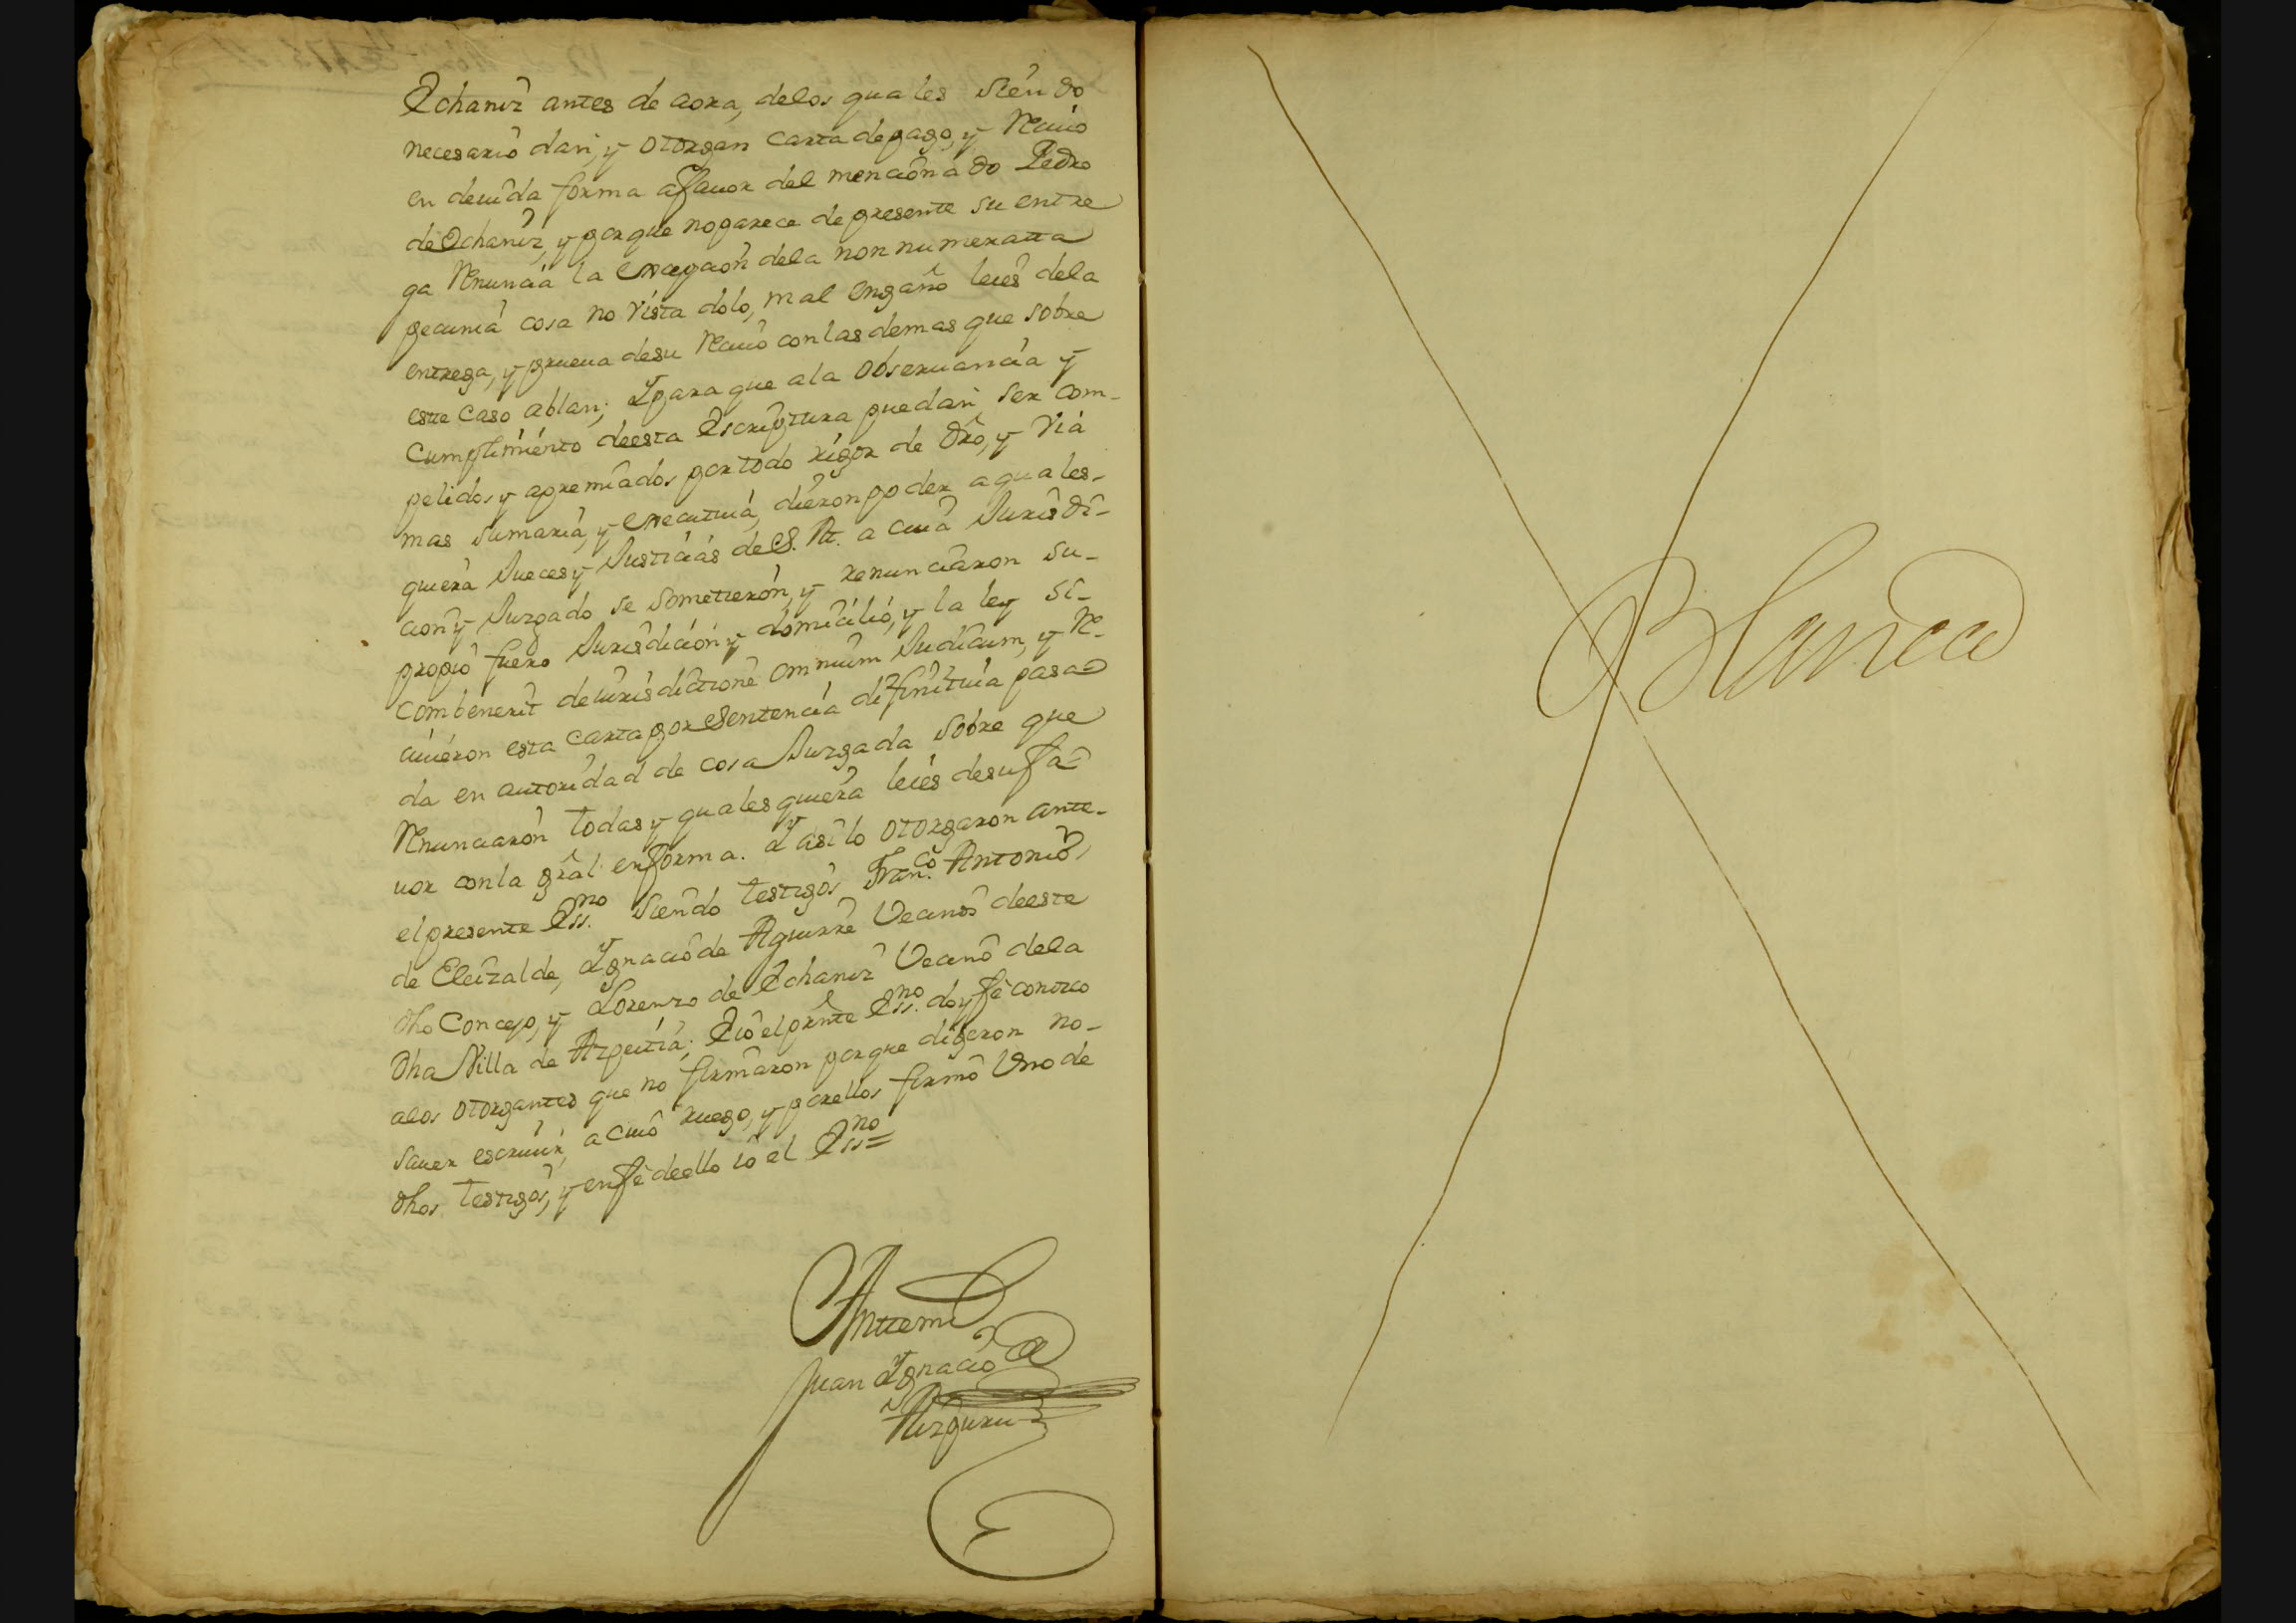 Echaniz antes de aora, delos quales siendo
necesario dan, y otorgan carta de pago, y Reciuo
en deuida forma affauor del mencionado Pedro
de Echaniz, y porque no parece de presente su entre
ga Renuncia la excepcion dela non numeratta
pecunia cosa no vista dolo, mal engaño leies dela
entrega, y prueua desu Reciuo con las demas que sobre
este caso ablan; Y para que ala obseruancia y
cumplimiento deesta Escriptura puedan ser com-
pelidos y apremiados por todo rigor de dro, y via
mas sumaria, y executiua, dieron poder a quales-
quiera Jueces y Justicias de S. M. a cuia Jurisdi-
cion y Juzgado se sometieron, y renunciaron su-
propio fuero Jurisdicion y domicilio, y la ley si-
combenerit de iurisdictione omnium Judicum, y Re-
ciuieron esta carta por Sentencia difinitiua pasa
da en autoridad de cosa Juzgada sobre que
Renunciaron todas y qualesquiera leies desu fa
uor con la gral en forma. Y asi lo otorgaron ante-
el presente Essno. siendo testigos Franco. Antonio
de Eleizalde, Ygnacio de Aguirre Vecinos deeste
dho Concejo, y Lorenzo de Echaniz Vecino dela
dha Villa de Azpeitia; E io el pnte Essno. doy fè conozco
alos otorgantes que no firmaron porque dijeron no-
sauer escriuir, a cuio ruego, y por ellos firmò Uno de
dhos testigos, y en fè deello io el Essno=
Anttemi
Juan Ygnacio
de Aizpuru
Blanca